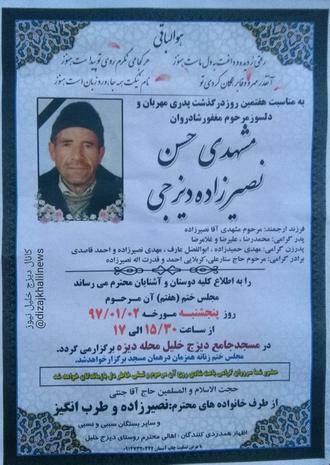 هوالباقی
رفتی ز دیده و داغت به دل ماست هنوز
هر کجا می نگرم روی تو پیداست هنوز
آنقدر مهر و وفا بر همگان کردی تو
نام نیکت همه جا ورد زبان است هنوز
به مناسبت هفتمین روز درگذشت پدری مهربان و
دلسوز مرحوم مغفور شادروان
مشهدی حسن
نصیرزاده دیزجی
فرزند ارجمند: مرحوم مشهدی آقا نصیرزاده
پدر گرامی: محمدرضا، علیرضا و غلامرضا
پدرزن گرامی: مهدی حمیدزاده، ابوالفضل عارف، مهدی نصیرزاده و احمد قاصدی
برادر گرامی: مرحوم حاج ستارعلی، کربلایی احمد و قدرت اله نصیرزاده
به اطلاع کلیه دوستان و آشنایان محترم می رساند
مجلس ختم (هفتم) آن مرحوم
روز پنجشنبه مورخه ۹۷/۰۱/۰۲
از ساعت ۱۵/۳۰ الی ۱۷
در مسجد جامع دیزج خلیل محله دیزه برگزار می گردد.
مجلس ختم زنانه همزمان در همان مسجد برگزار خواهد شد.
حضور شما سروران گرامی باعث شادی روح آن مرحوم و تسلی خاطر بازماندگان خواهد شد
حجت الاسلام و المسلمین حاج آقا جنتی
از طرف خانواده های محترم: نصیرزاده و طرب انگیز
و سایر بستگان سببی و نسبی
اظهار همدردی کنندگان: اهالی محترم روستای دیزج خلیل
کانال دیزج خلیل نیوز
@dizajkhalilnews